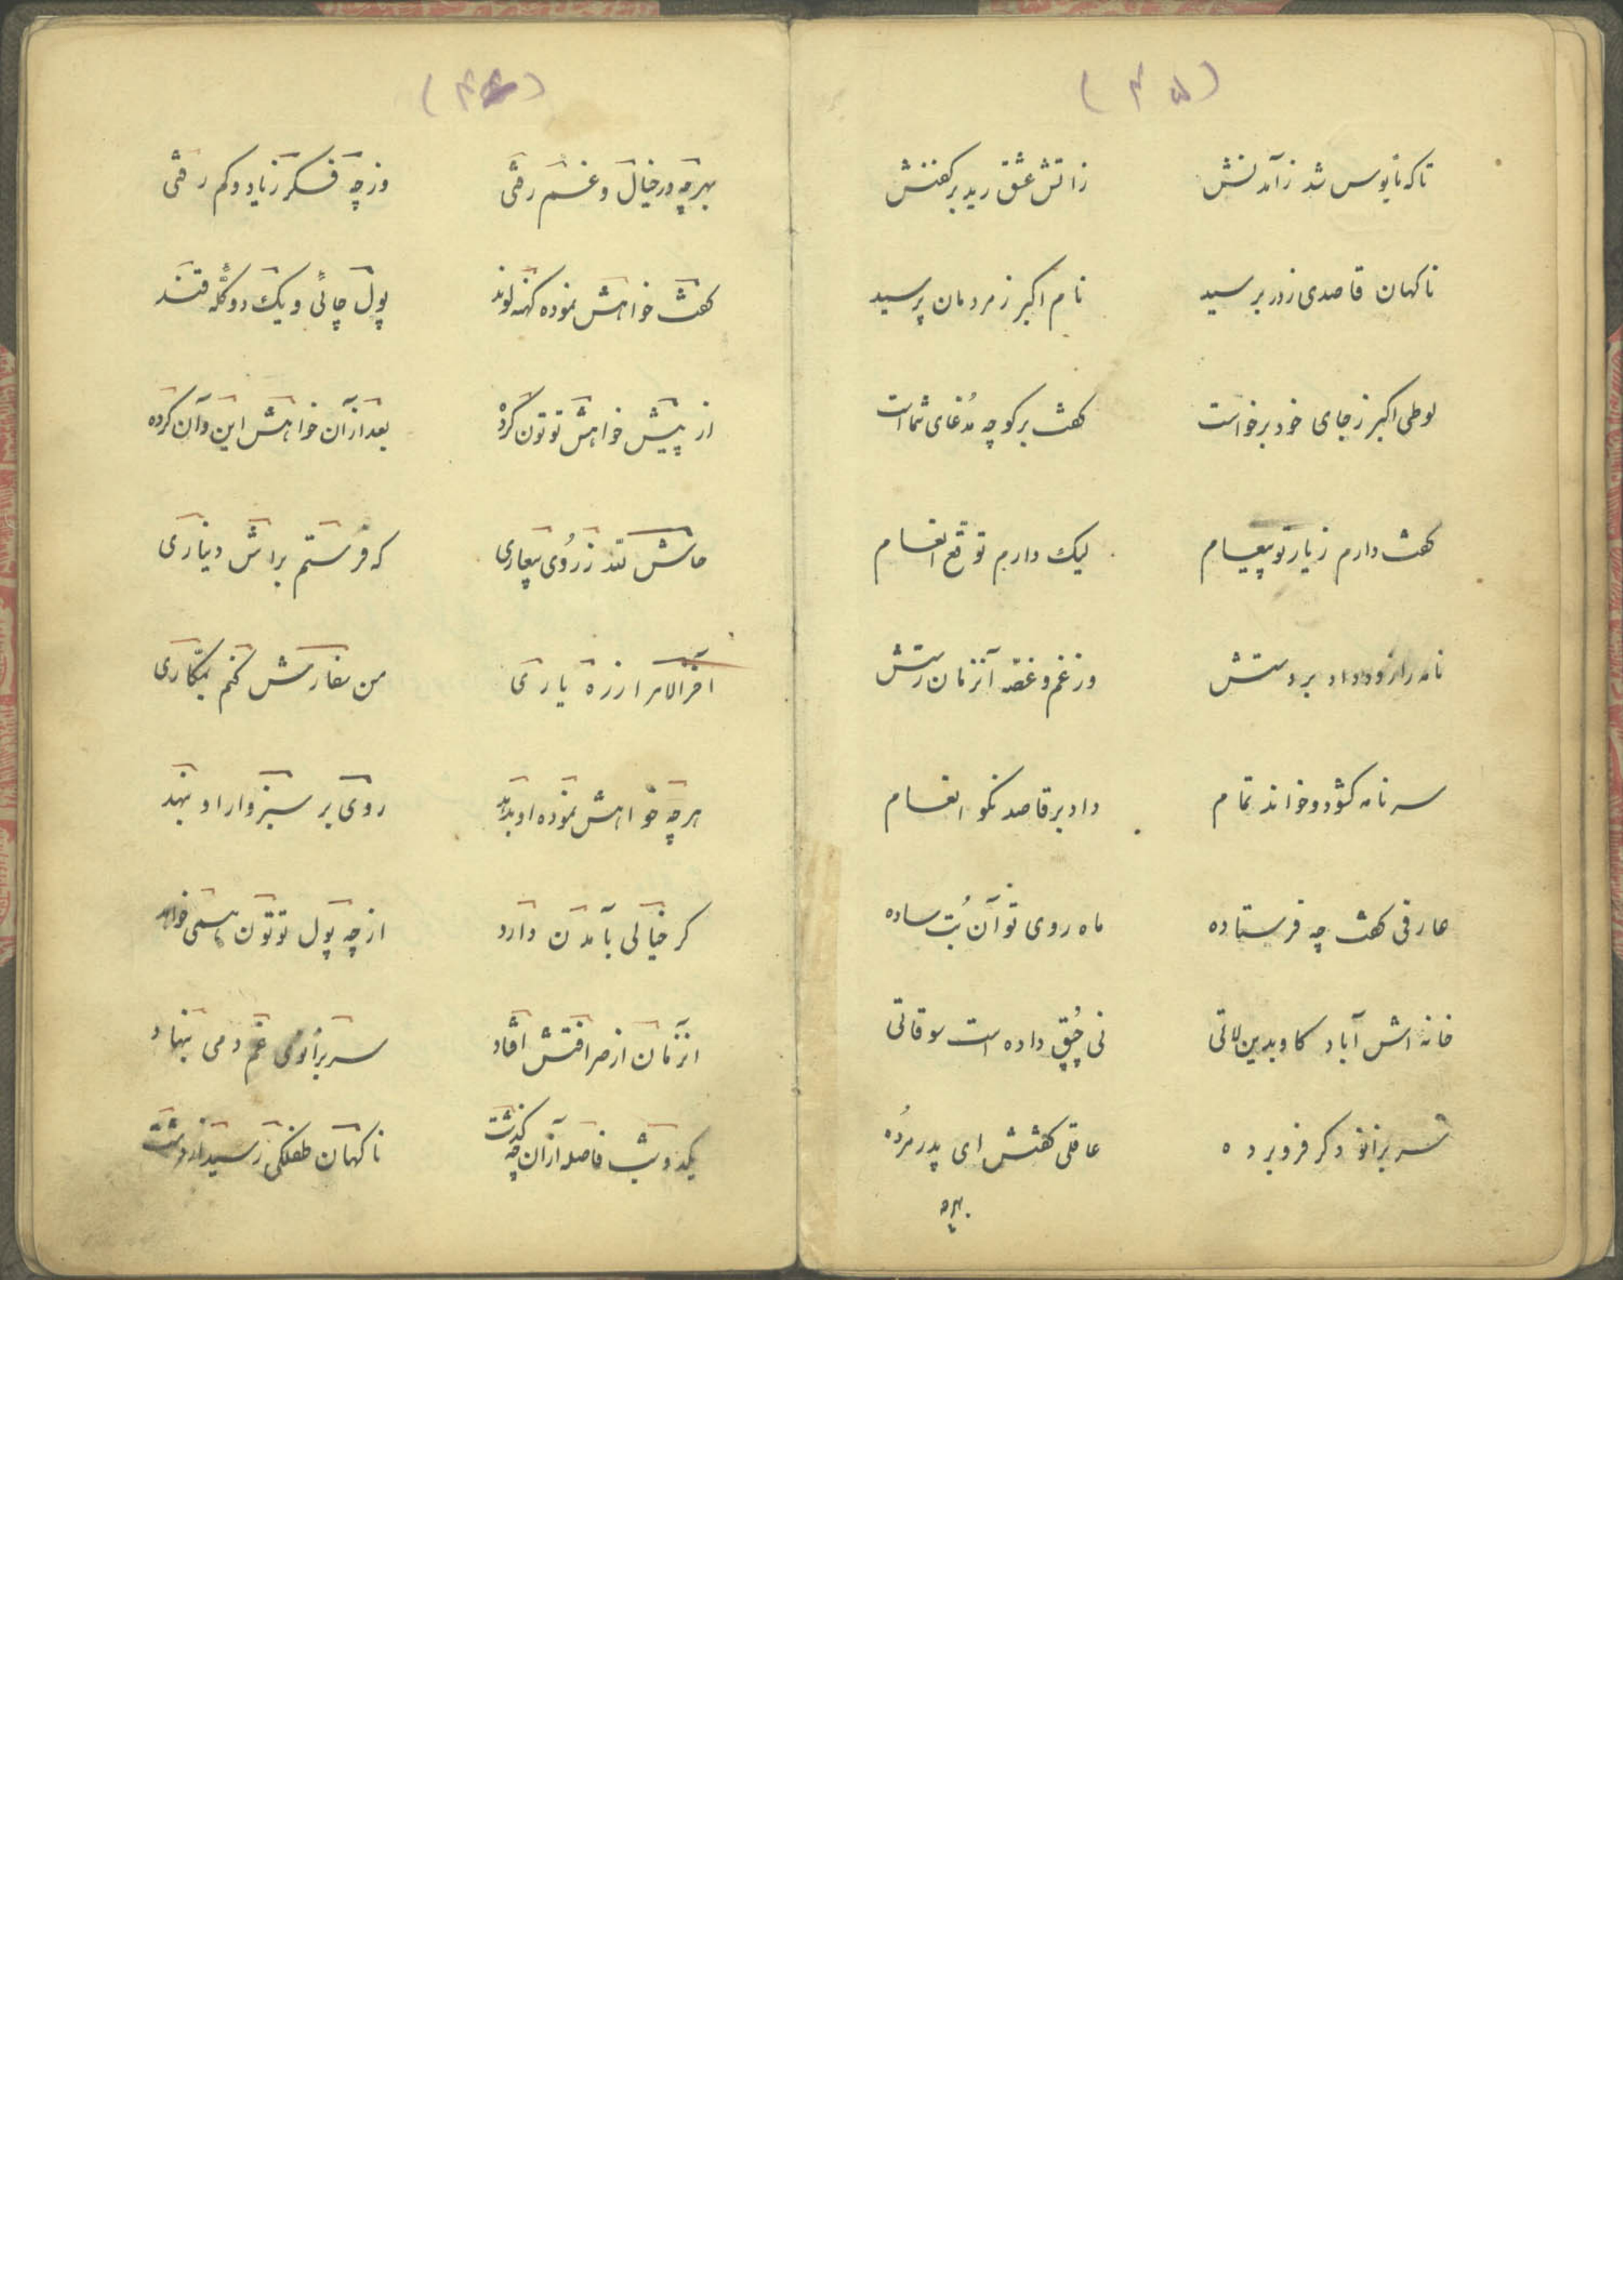 (۴۵)
تا که مأیوس شد ز آمدنش زاتش عشق رید بر کفنش
ناکهان قاصدی ز در برسید نام اکبر ز مردمان پرسید
لوطی اکبر ز جای خود برخواست کفت برکو چه مدّعای شما است
کفت دارم ز یار تو پیغام لیک دارم توقع انعام
نامه را زود داد بر دستش وز غم و غصّه آنزمان رستش
سر نامه کشود و خواند تمام داد بر قاصد نکو انعام
عارفی کفت چه فرستاده ماه روی تو آن بُت ساده
خانه اش آباد کاو بدین لاتی نی چُپق داده است سوقاتی
سر بزانو دکر فرو برده عاقلی کفتش ای پدر مرُده
بهرچه
(۴۶)
بهرچه در خیال و غم رفتی وز چه فکر زیاد و کم رفتی
کفت خواهش نموده کهنه لوند پول چائی و یک دو کلّه قند
از پیش خواهش توتون کرده بعد از آن خواهش این و آن کرده
حاش لله ز رُوی بیعاری که فرستم براش دیناری
آخر الامر از ره یاری من سفارش کنم بیکاری
هر چه خواهش نموده او بدهد روی بر سبزوار او بنهد
کر خیالی بآمدن دارد از چه پول توتون همی خواهد
آنزمان از صرافتش افتاد سر بزانوی غم دمی بنهاد
یکدو شب فاصله از آن چه کذشت ناکهان طفلکی رسید از دشت